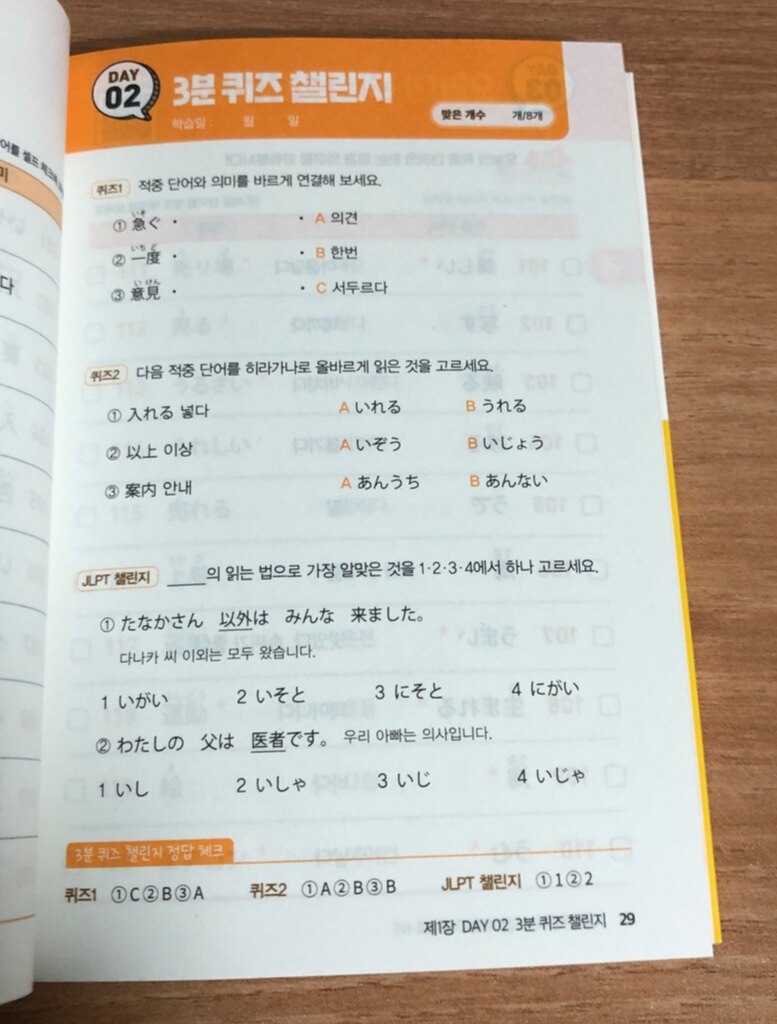 DAY 02
3분 퀴즈 챌린지
학습일 : 월 일
맞은 개수 개/8개
퀴즈1 적중 단어와 의미를 바르게 연결해 보세요.
いそ
① 急ぐ · · A 의견
いち ど
② 一度 · · B 한번
い けん
③ 意見 · · C 서두르다
퀴즈2 다음 적중 단어를 히라가나로 올바르게 읽은 것을 고르세요.
① 入れる 넣다 A いれる B うれる
② 以上 이상 A いぞう B いじょう
③ 案内 안내 A あんうち B あんない
JLPT 챌린지 ____의 읽는 법으로 가장 알맞은 것을 1·2·3·4에서 하나 고르세요.
① たなかさん 以外は みんな 来ました。
다나카 씨 이외는 모두 왔습니다.
1 いがい 2 いそと 3 にそと 4 にがい
② わたしの 父は 医者です。 우리 아빠는 의사입니다.
1 いし 2 いしゃ 3 いじ 4 いじゃ
3분 퀴즈 챌린지 정답 체크
퀴즈1 ①C②B③A 퀴즈2 ①A②B③B JLPT 챌린지 ①1②2
제1장 DAY 02 3분 퀴즈 챌린지 29